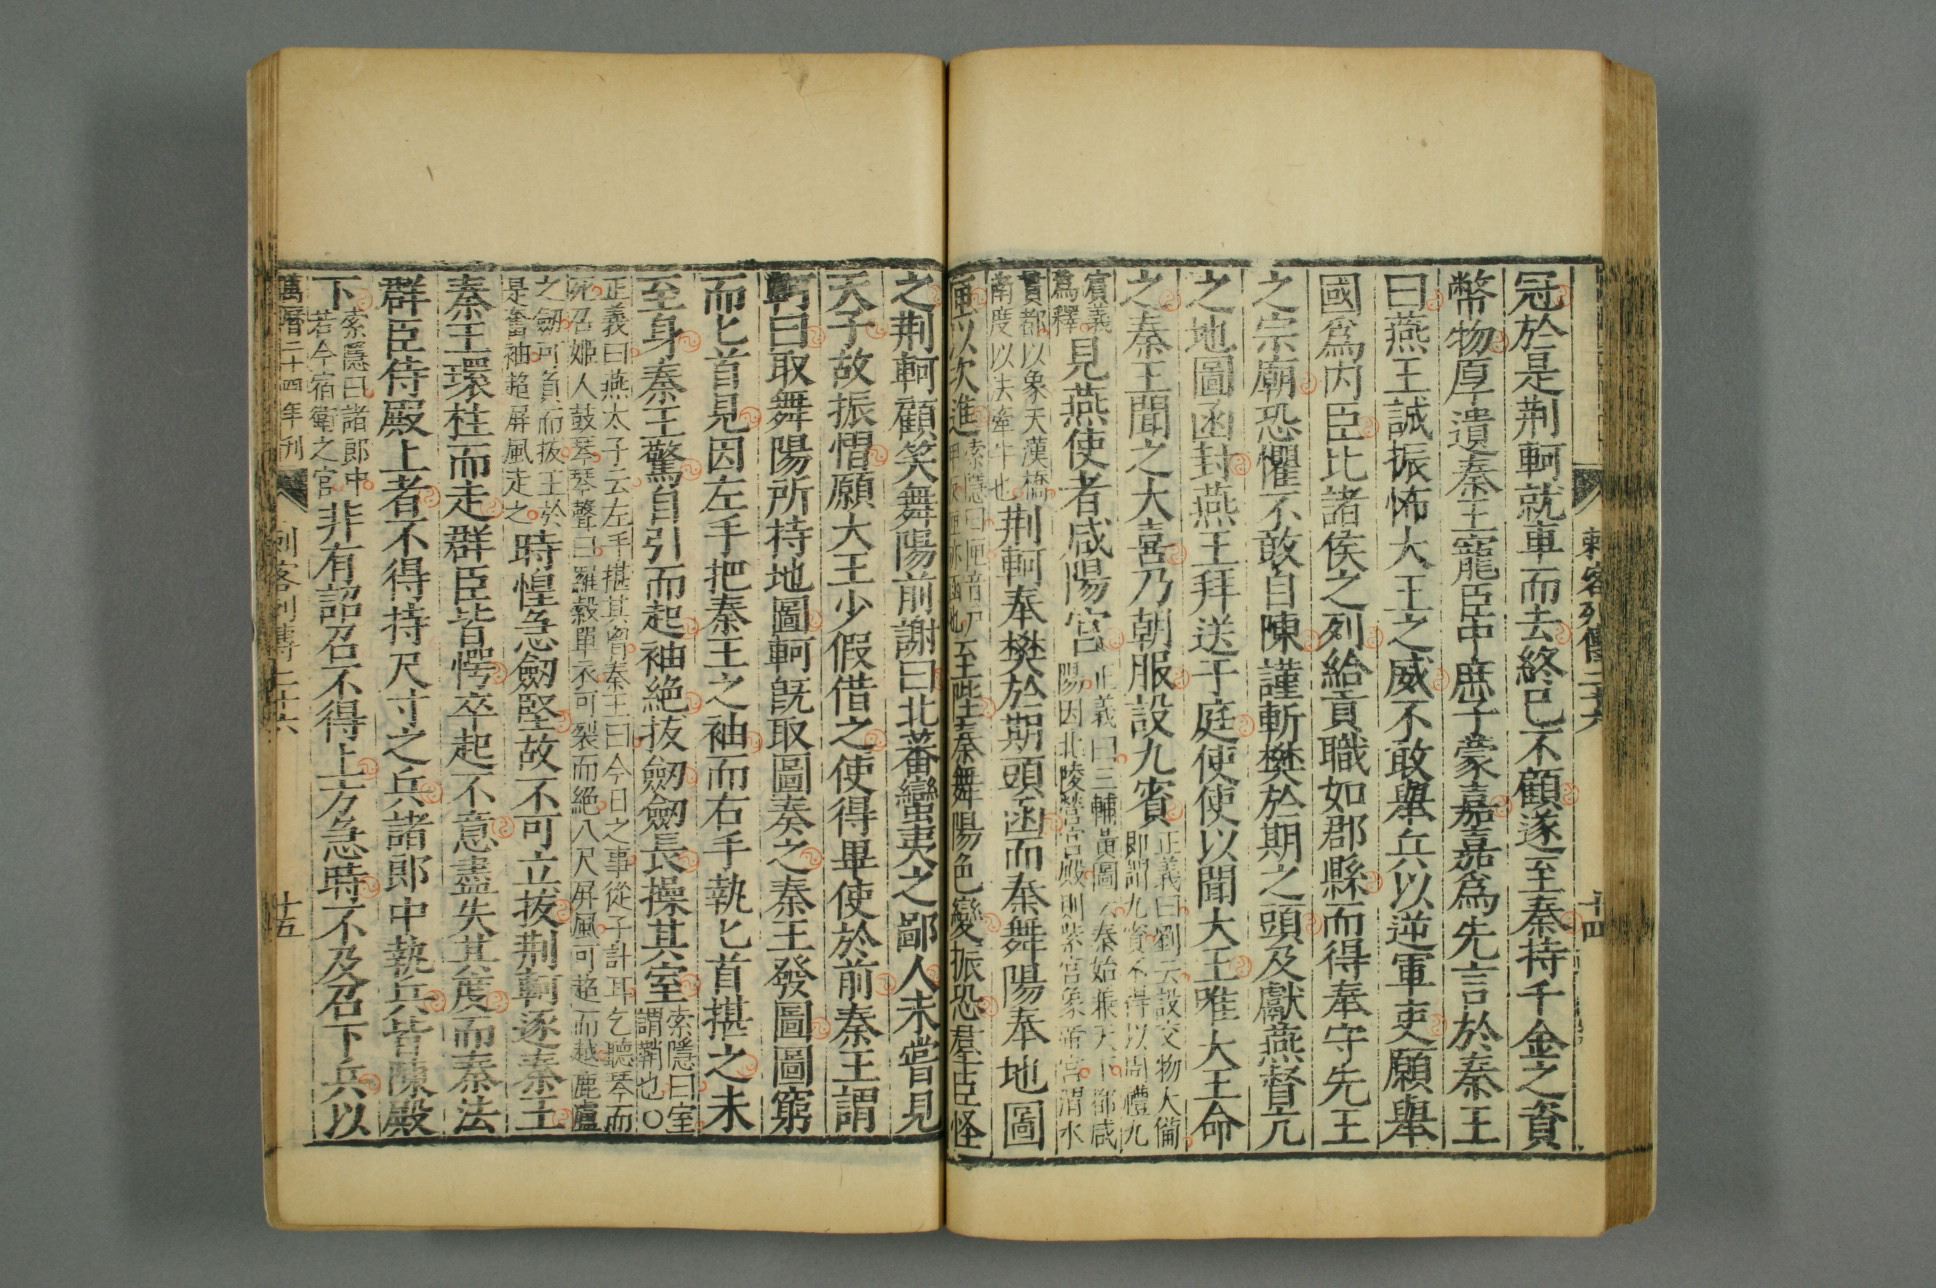 刺客列傳二十六
十四
冠於是荆軻就車而去終已不顧遂至秦持千金之資
幣物厚遺秦王寵臣中庶子蒙嘉嘉爲先言於秦王
曰燕王誠振怖大王之威不敢舉兵以逆軍吏願舉
國爲内臣比諸侯之列給貢職如郡縣而得奉守先王
之宗廟恐懼不敢自陳謹斬樊於期之頭及獻燕督亢
之地圖函封燕王拜送于庭使使以聞大王唯大王命
之秦王聞之大喜乃朝服設九賓
正義曰劉云設文物大備
即謂九賓不得以周禮九
賓義
爲釋
見燕使者咸陽宮
正義曰三輔黃圖云秦始兼天下都咸
陽因北陵營宮殿則紫宮象帝宮渭水
貫都以象天漢橋
南度以法牽牛也
荆軻奉樊於期頭函而秦舞陽奉地圖
匣以次進
索隱曰匣音
王陛秦舞陽色變振恐群臣怪
之荆軻顧笑舞陽前謝曰北蕃蠻夷之鄙人未嘗見
天子故振慴願大王少假借之使得畢使於前秦王謂
軻曰取舞陽所持地圖軻旣取圖奏之秦王發圖圖窮
而匕首見因左手把秦王之袖而右手執匕首揕之未
至身秦王驚自引而起袖絶拔劒劒長操其室
索隱曰室
謂鞘也○
正義曰燕太子云左手揕其胷秦王曰今日之事從子計耳乞聽琴而
死召姬人鼓琴琴聲曰羅縠單衣可裂而絶八尺屏風可超而越鹿盧
之劒可負而拔王於
是奮袖超屏風走之
時惶急劒堅故不可立拔荆軻逐秦王
秦王環柱而走群臣皆愕卒起不意盡失其度而秦法
群臣侍殿上者不得持尺寸之兵諸郎中執兵皆陳殿
下
索隱曰諸郎中
若今宿衛之官
非有詔召不得上方急時不及召下兵以
萬曆二十四年刊
刺客列傳二十六
十五